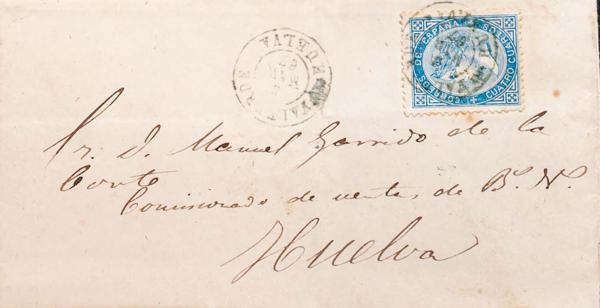 VALVERDE
HUELVA
MAR
67
CORREOS DE ESPAÑA
CUATRO CUARTOS
Sr. D. Manuel Garrido de la
Corte
Comisionado de ventas de Bs. Ns.
Huelva